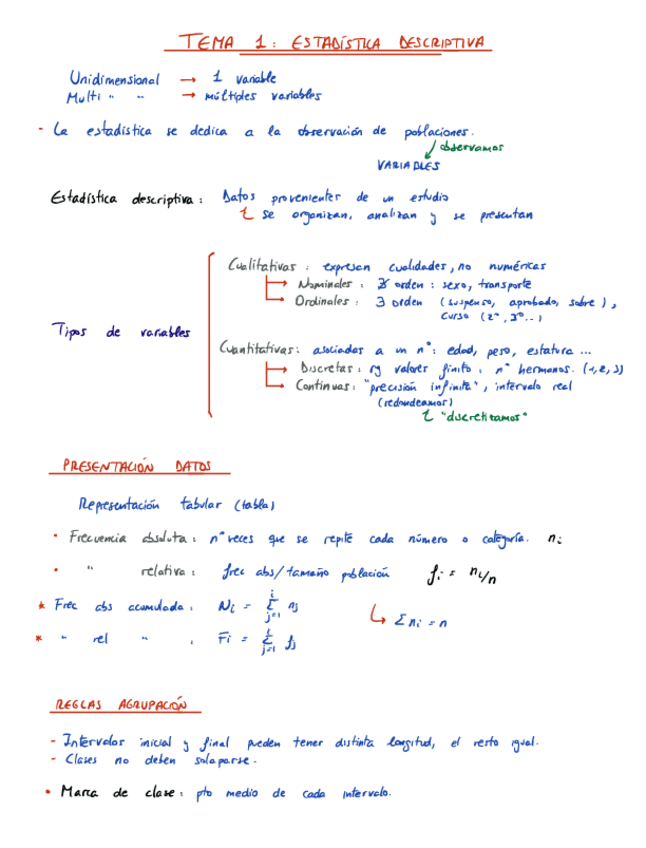 TEMA 1: ESTADÍSTICA DESCRIPTIVA
Unidimensional → 1 variable
Multi " " → múltiples variables
- La estadística se dedica a la observación de poblaciones.
observamos
VARIABLES
Estadística descriptiva: Datos provenientes de un estudio
se organizan, analizan y se presentan
Tipos de variables
Cualitativas: expresan cualidades, no numéricas
Nominales: ∄ orden: sexo, transporte
Ordinales: ∃ orden (suspenso, aprobado, sobre),
curso (2º, 3º..)
Cuantitativas: asociadas a un nº: edad, peso, estatura ...
Discretas: nº valores finito: nº hermanos. (1,2,3)
Continuas: "precisión infinita", intervalo real
(redondeamos)
"discretizamos"
PRESENTACIÓN DATOS
Representación tabular (tabla)
• Frecuencia absoluta: nº veces que se repite cada número o categoría. ni
• " relativa: frec abs/tamaño población fi = ni/n
* Frec abs acumulada: Ni = Σ(j=1..i) nj ↳ Σni = n
* " rel " : Fi = Σ(j=1..i) fj
REGLAS AGRUPACIÓN
- Intervalos inicial y final pueden tener distinta longitud, el resto igual.
- Clases no deben solaparse.
• Marca de clase: pto medio de cada intervalo.